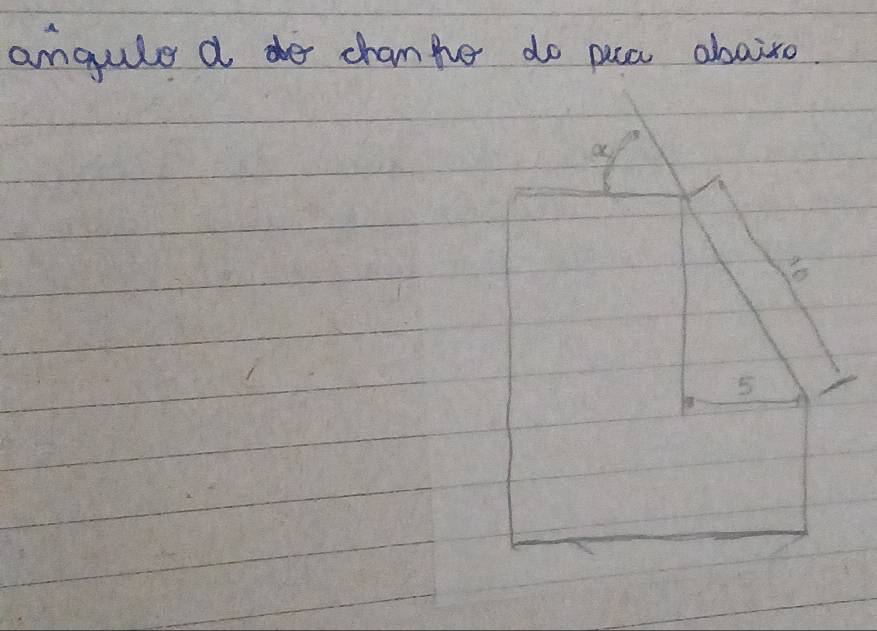 ângulo α do chanfro da peça abaixo.
α
10
5